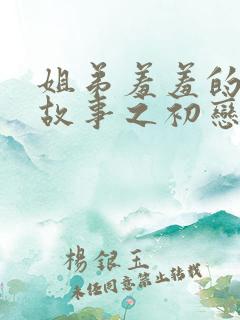 姐弟羞羞的
故事之初戀
楊銀玉
未经同意禁止转载